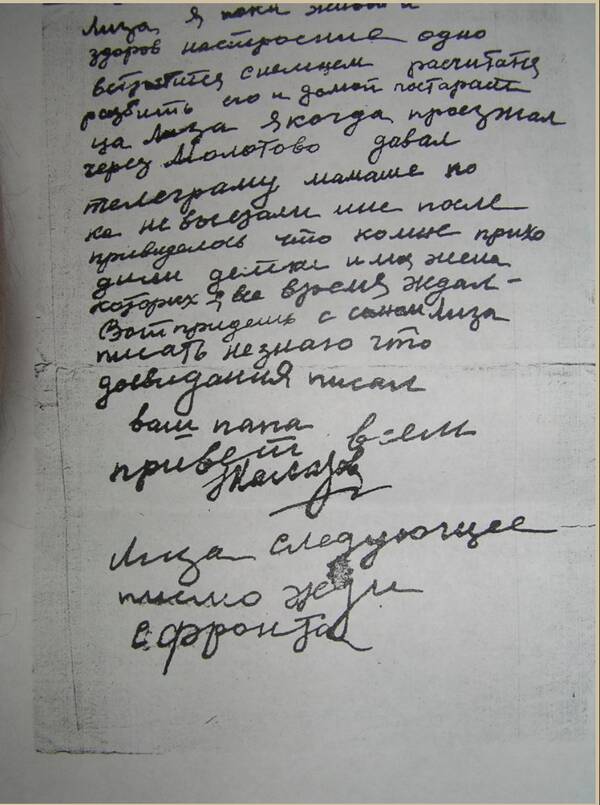 Лиза, я пока живой и
здоров настроение одно
встретится с немцем расчитатся
разбить его и домой постараем
ца Лиза я когда проезжал
через Молотово давал
телеграму мамаше по
ка не выезали мне после
привиделось что комне прихо
дили детки и моя жена
которых я все время ждал-
Вот придешь с сыном Лиза
писать незнаю что
досвидания писал
ваш папа
привет всем
Лиза следующее
писмо жди
с фронта